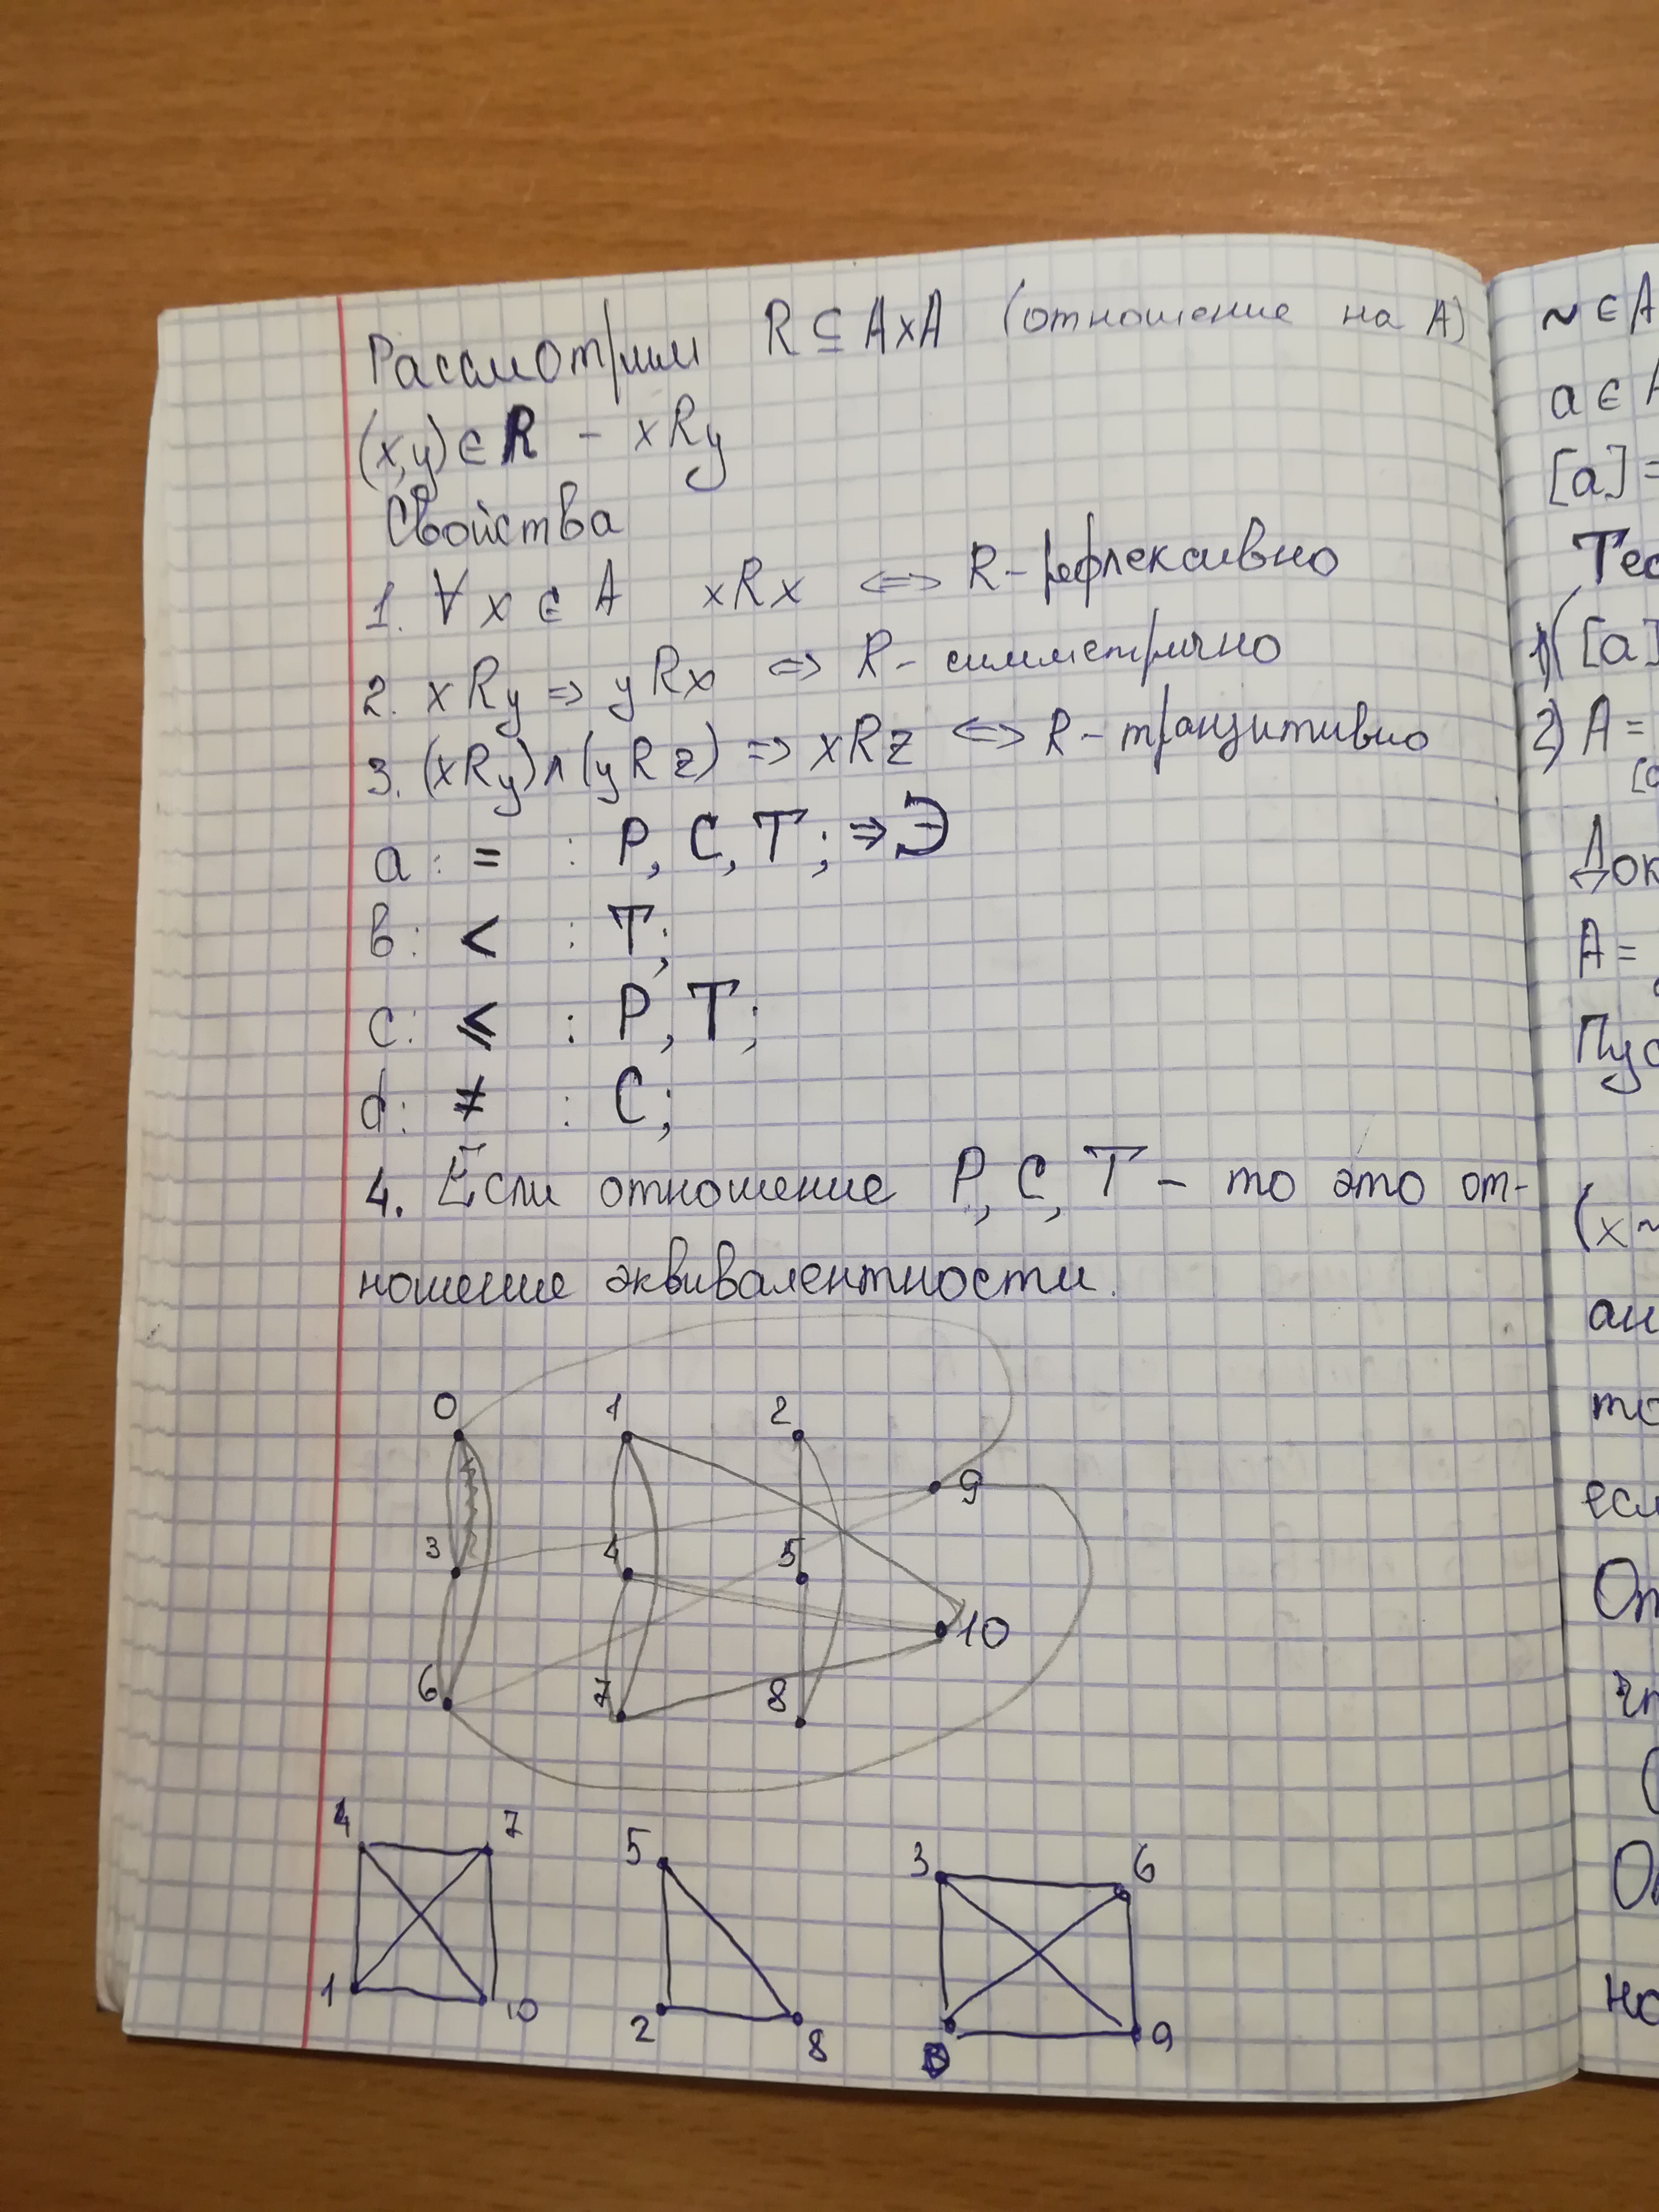 Рассмотрим R ⊆ A×A (отношение на A)
(x,y) ∈ R – xRy
Свойства
1. ∀ x ∈ A xRx <=> R – рефлексивно
2. xRy => yRx <=> R – симметрично
3. (xRy)∧(yRz) => xRz <=> R – транзитивно
a: = : Р, С, Т; => Э
b: < : Т;
c: ⩽ : Р, Т;
d: ≠ : С;
4. Если отношение Р, С, Т – то это от-
ношение эквивалентности.
0 1 2
9
3 4 5
10
6 7 8
4 7 5 3 6
1 10 2 8 0 9
~ ∈ A
a ∈ A
[a] =
Тео
1) ([a]
2) A =
Док
A =
Пус
(x ~
ан
то
есл
От
чт
От
но